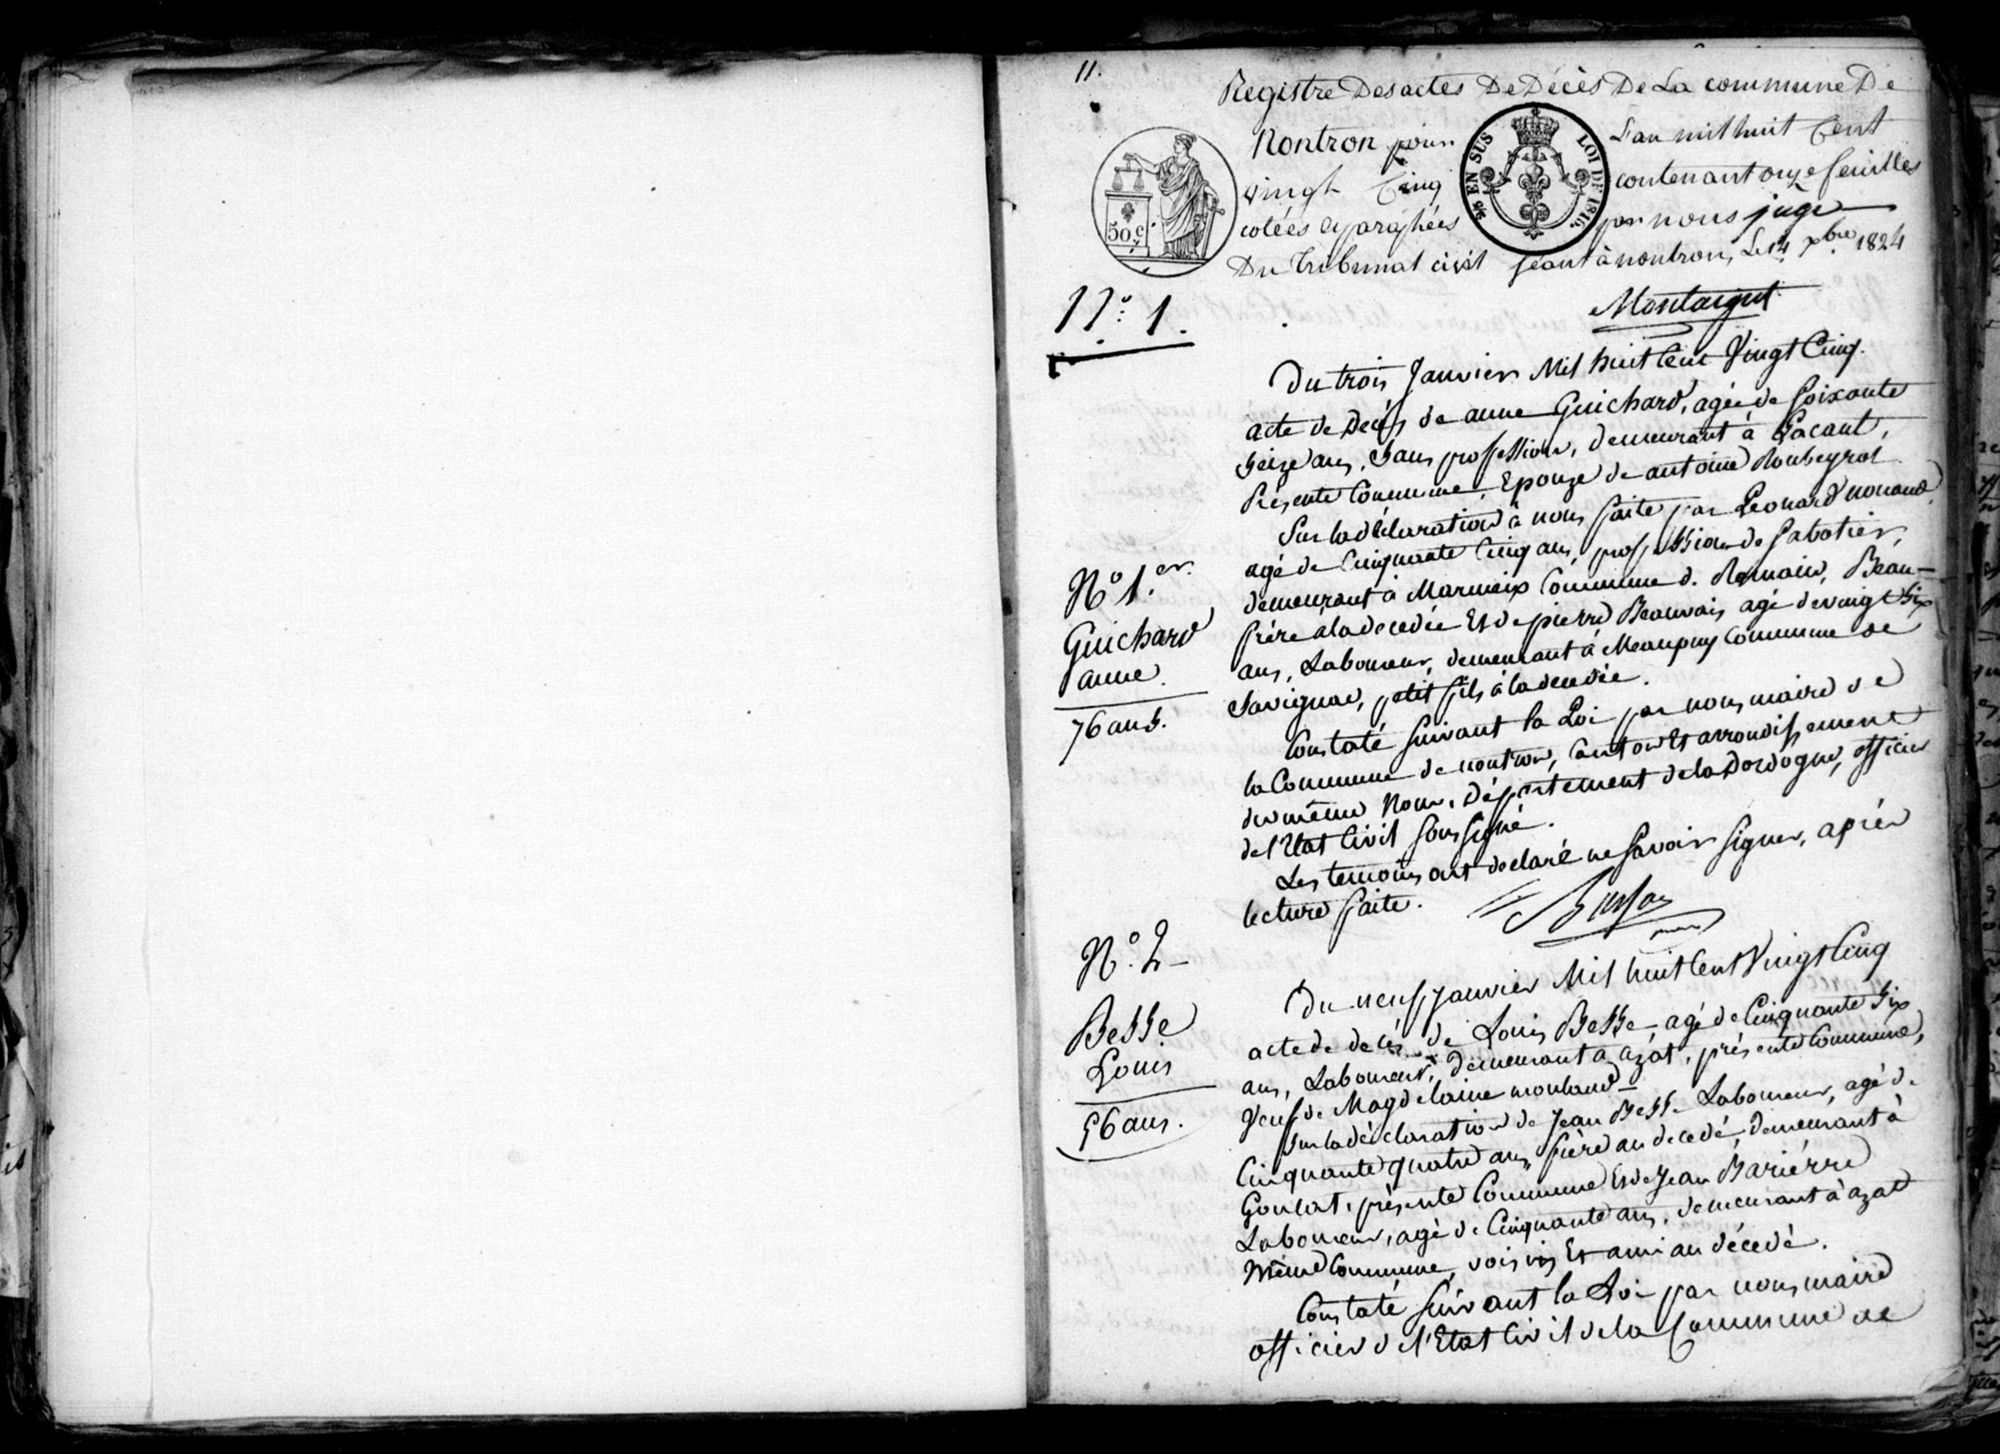 11.
Registre Des actes De Décès De La commune De
Nontron pour L'an mil huit Cent
vingt Cinq contenant onze feuilles
cotées et paraphées par nous juge
Du Tribunal civil séant à nontron, Le 14 xbre 1824
Montaigut
50 c
2/10 EN SUS LOI DE 1816.
N° 1.
Du trois Janvier Mil huit Cent Vingt Cinq.
acte de Décès de anne Guichard, agée de Soixante
Seize ans, Sans profession, demeurant à Lacaut,
Présente Commune, Epouze de antoine Roubeyrol
Sur la déclaration à nous faite par Léonard nouaud
agé de Cinquante Cinq ans, profession de Sabotier,
demeurant à Marmeix Commune d. Romain, Beau-
frère a la decedée Et de pierre Beauvais agé de vingt Six
ans, Laboureur, demeurant à Meaupuy Commune de
Savignac, petit fils à la decedée.
Constaté Suivant la Loi par nous maire de
la Commune de nontron, Canton Et arrondissement
du même Nom, Département de la Dordogne, officier
de l'Etat Civil Soussigné.
Les temoins ont declaré ne Savoir Signer, après
lecture faite.
N° 1er.
Guichard
anne.
76 ans.
N° 2
Besse
Louis
56 ans.
Du neuf Janvier Mil huit Cent Vingt Cinq
acte de decès de Louis Besse, agé de Cinquante Six
ans, Laboureur, demeurant a azat, présente Commune,
Veuf de Magdelaine mouland
Sur la déclaration de Jean Besse Laboureur, agé de
Cinquante quatre ans, frère au decedé, demeurant à
Goulat, présente Commune Et de Jean Bariérre
Laboureur, agé de Cinquante ans, demeurant à azat
Même Commune, voisin Et ami au décédé.
Constaté Suivant la Loi par nous maire
officier de l'Etat Civil de la Commune de